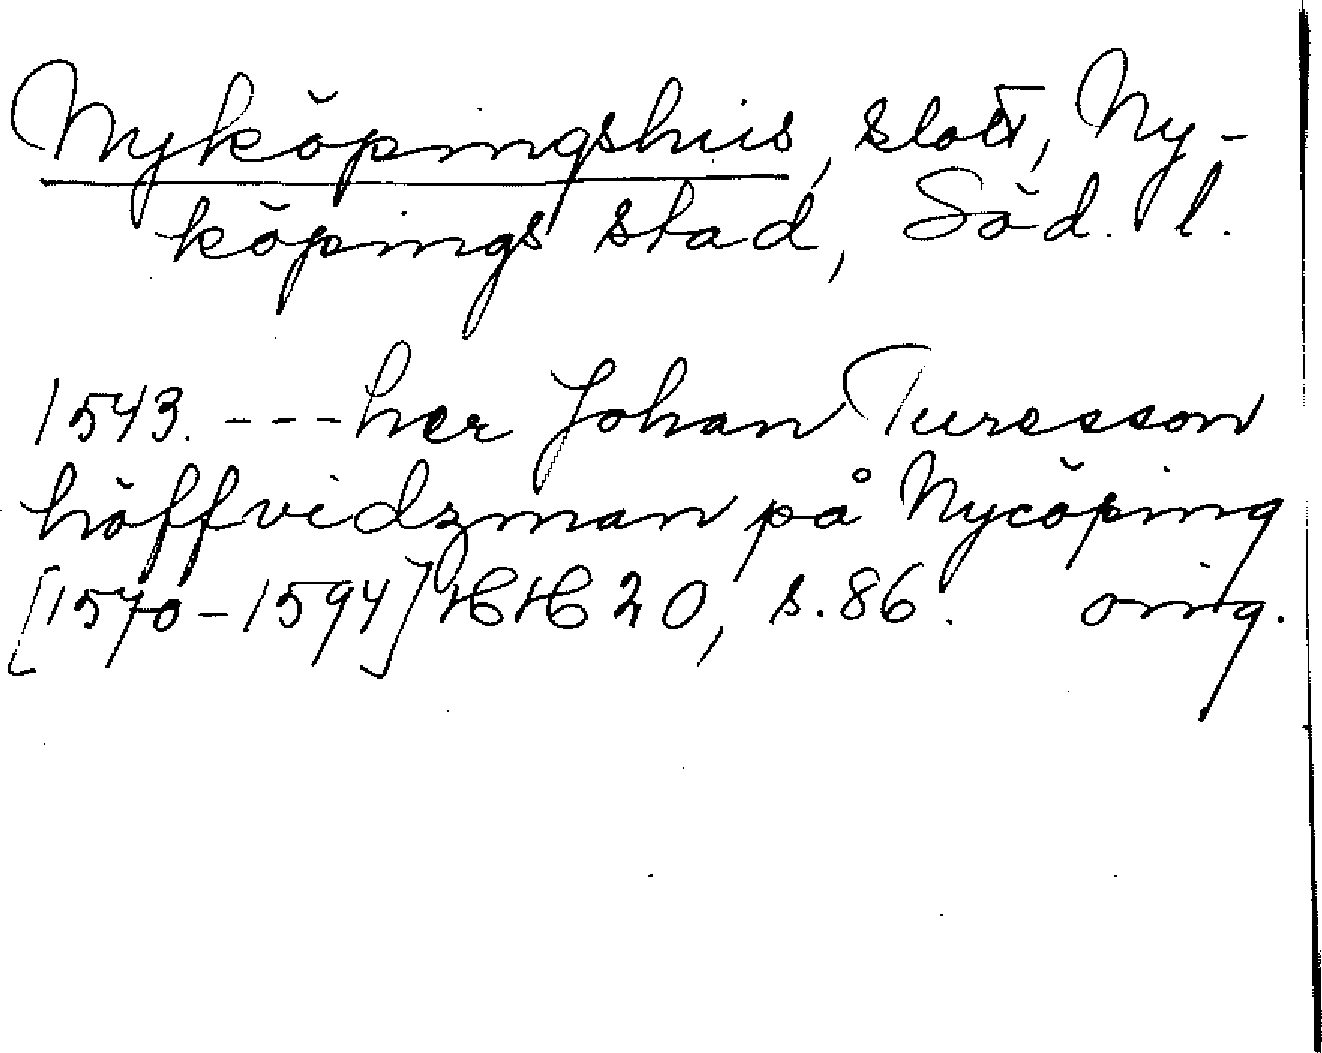 Nyköpingshus, slott, Ny-
köpings stad, Söd. l.
1543. --- her Johan Turesson
höffvidzman på Nycöping
[1570-1594] HH 20, s. 86. orig.